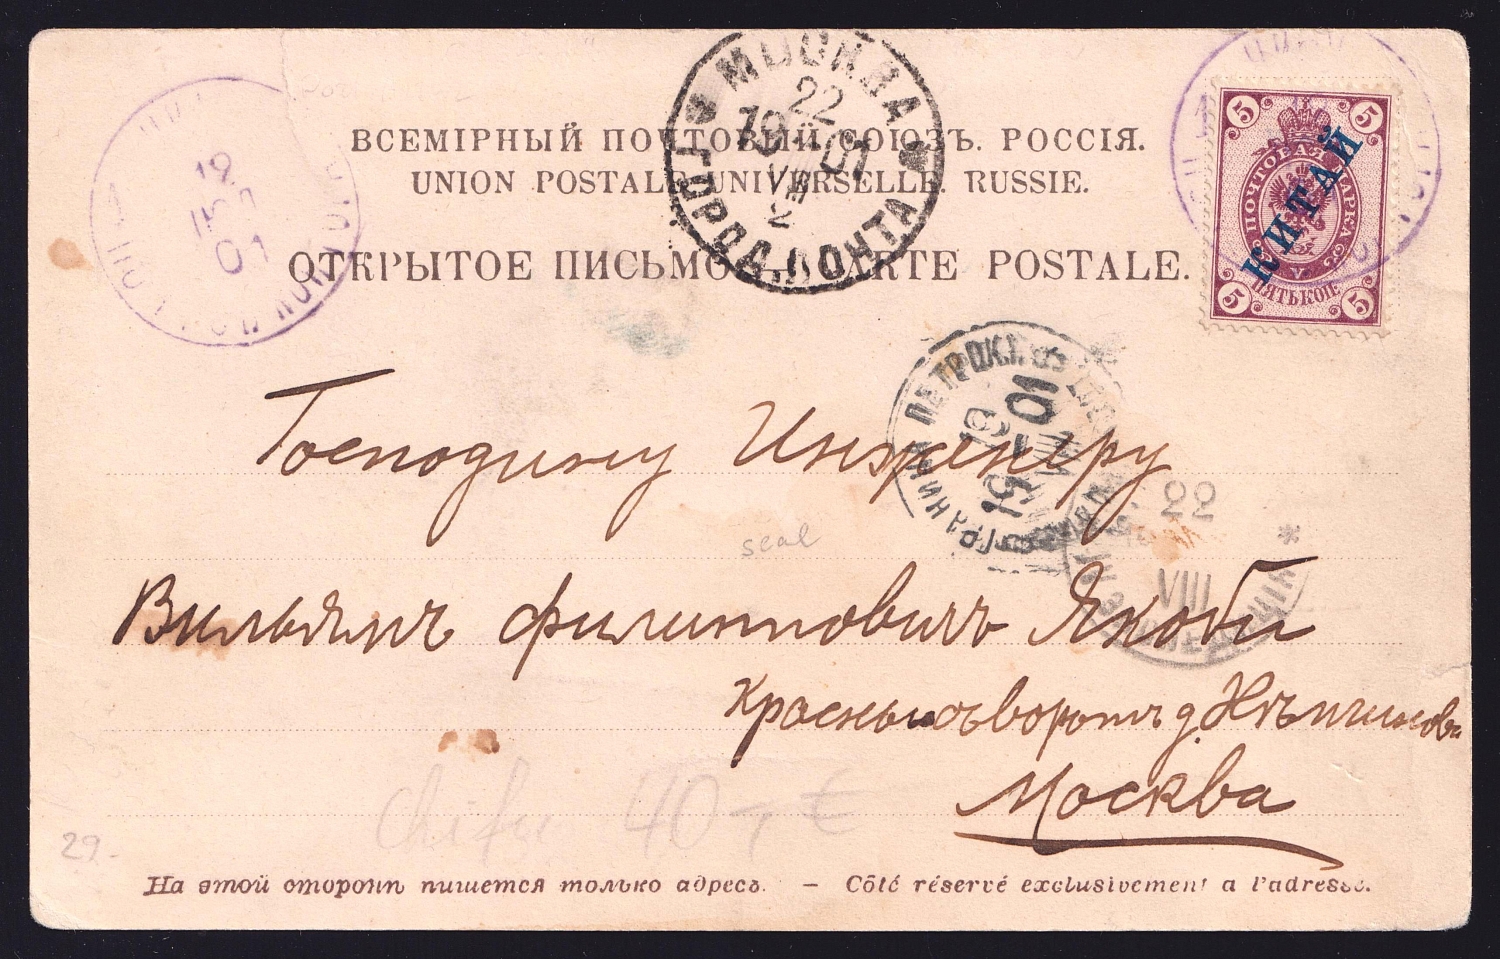 ВСЕМІРНЫЙ ПОЧТОВЫЙ СОЮЗЪ. РОССІЯ.
UNION POSTALE UNIVERSELLE. RUSSIE.
ОТКРЫТОЕ ПИСЬМО. CARTE POSTALE.
МОСКВА
22
19 01
VIII
2
ГОРОД. ПОЧТА
12
01
5 5
ПОЧТОВАЯ МАРКА
КИТАЙ
V
ПЯТЬ КОП.
5 5
19 01
VIII
22
VIII
Господину Инженеру
seal
Вильямъ Филипповичъ Якоби
Красныхъ воротъ д. Нѣмчинова
Москва
40,- €
29.-
На этой сторонѣ пишется только адресъ. — Côté réservé exclusivement a l'adresse.